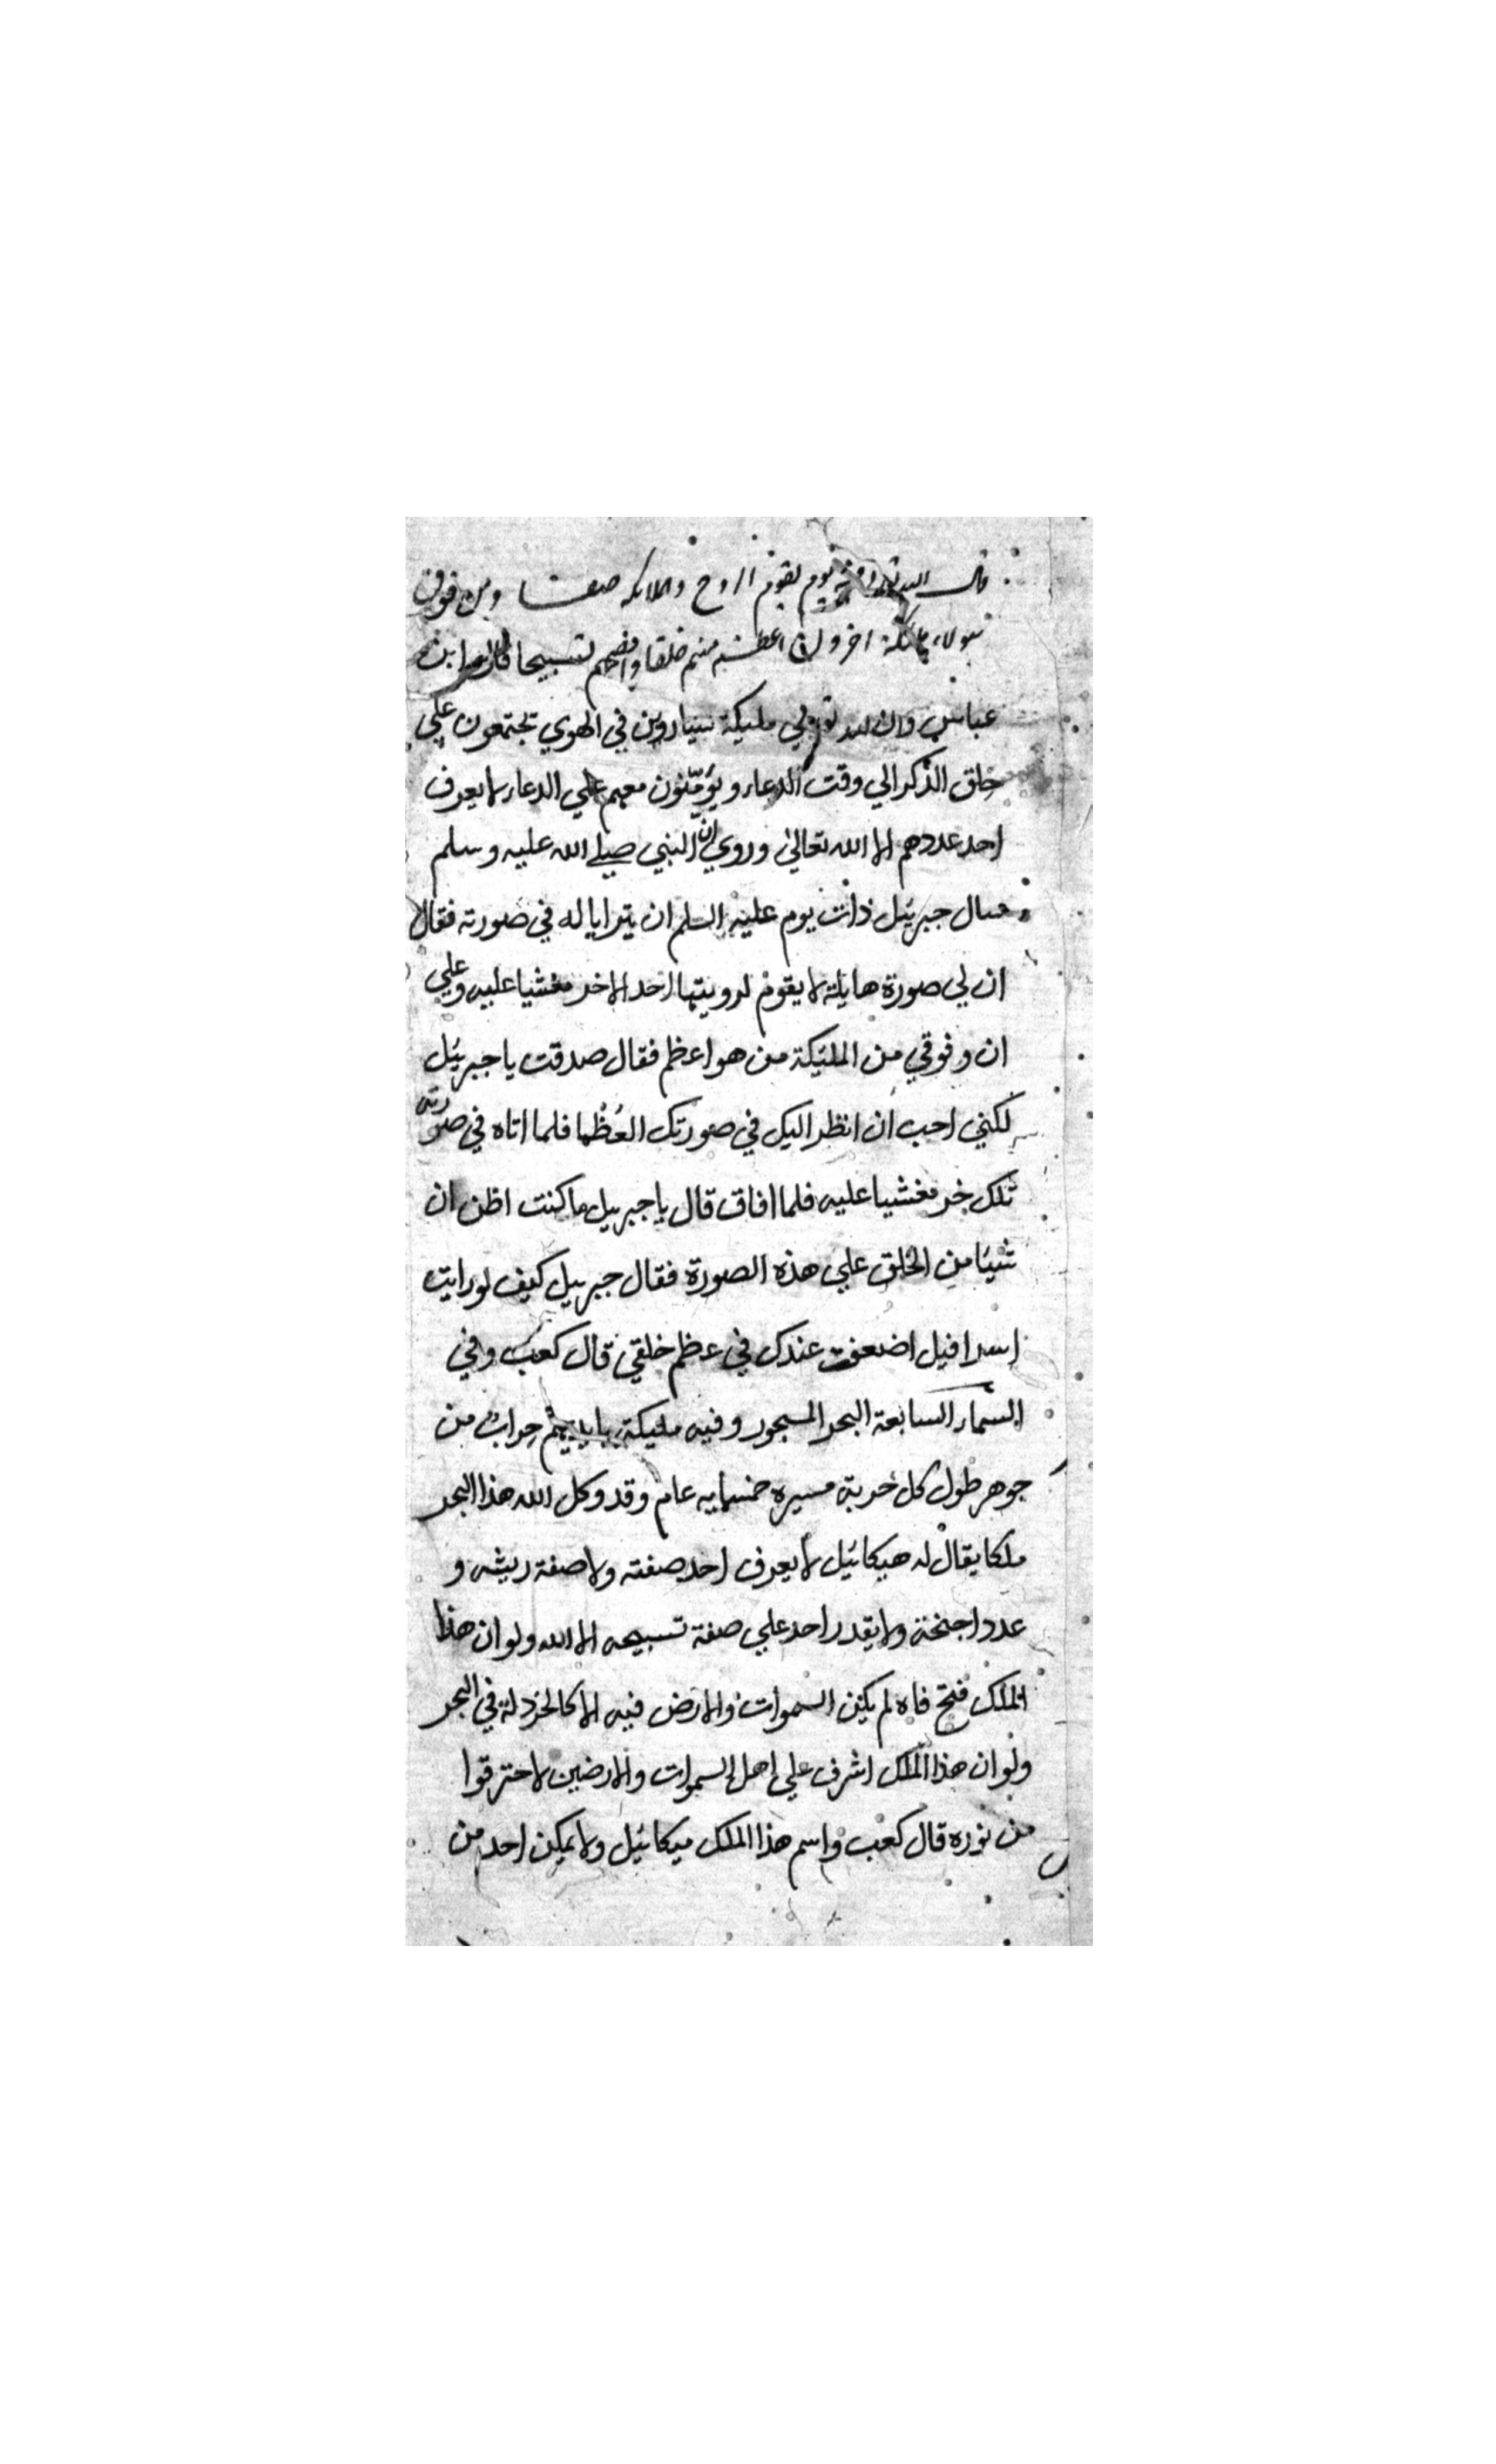 قال الله تعالى يوم يقوم الروح والملائكة صفا ومن فوق
هولاء ملائكة اخرون اعظم منهم خلقا وافصحهم تسبيحا قال ابن
عباس وان لله تعالي مليكة سيارون في الهوي تجتمعون علي
حلق الذكر الي وقت الدعاء ويؤمّنون معهم علي الدعاء لا يعرف
احد عددهم الا الله تعالي وروي ان النبي صلي الله عليه وسلم
سال جبرئيل ذات يوم عليه السلم ان يترايا له في صورته فقال
ان لي صورة هايلة لا يقوم لرويتها احد الا خر مغشيا عليه وعلي
ان وفوقي من المليكة من هو اعظم فقال صدقت يا جبرئيل
لكني احب ان انظر اليك في صورتك العُظْما فلما اتاه في صورته
تلك خر مغشيا عليه فلما افاق قال يا جبريل ما كنت اظن ان
شيئا من الخلق علي هذه الصورة فقال جبريل كيف لو رايت
اسرافيل اضعفت عندك في عظم خلقي قال كعب وفي
السماء السابعة البحر المسجور وفيه مليكة بايديهم حراب من
جوهر طول كل حربة مسيرة خمسمايه عام وقد وكل الله هذا البحر
ملكا يقال له هيكائيل لا يعرف احد صفته ولا صفة ريشه و
عدد اجنحة ولا يقدر احد علي صفة تسبيحه الا الله ولو ان هذا
الملك فتح فاه لم يكن السموات والارض فيه الا كالخردلة في البحر
ولو ان هذا الملك اشرف علي اهل السموات والارضين لاحترقوا
من نوره قال كعب واسم هذا الملك ميكائيل ولا يمكن احد من